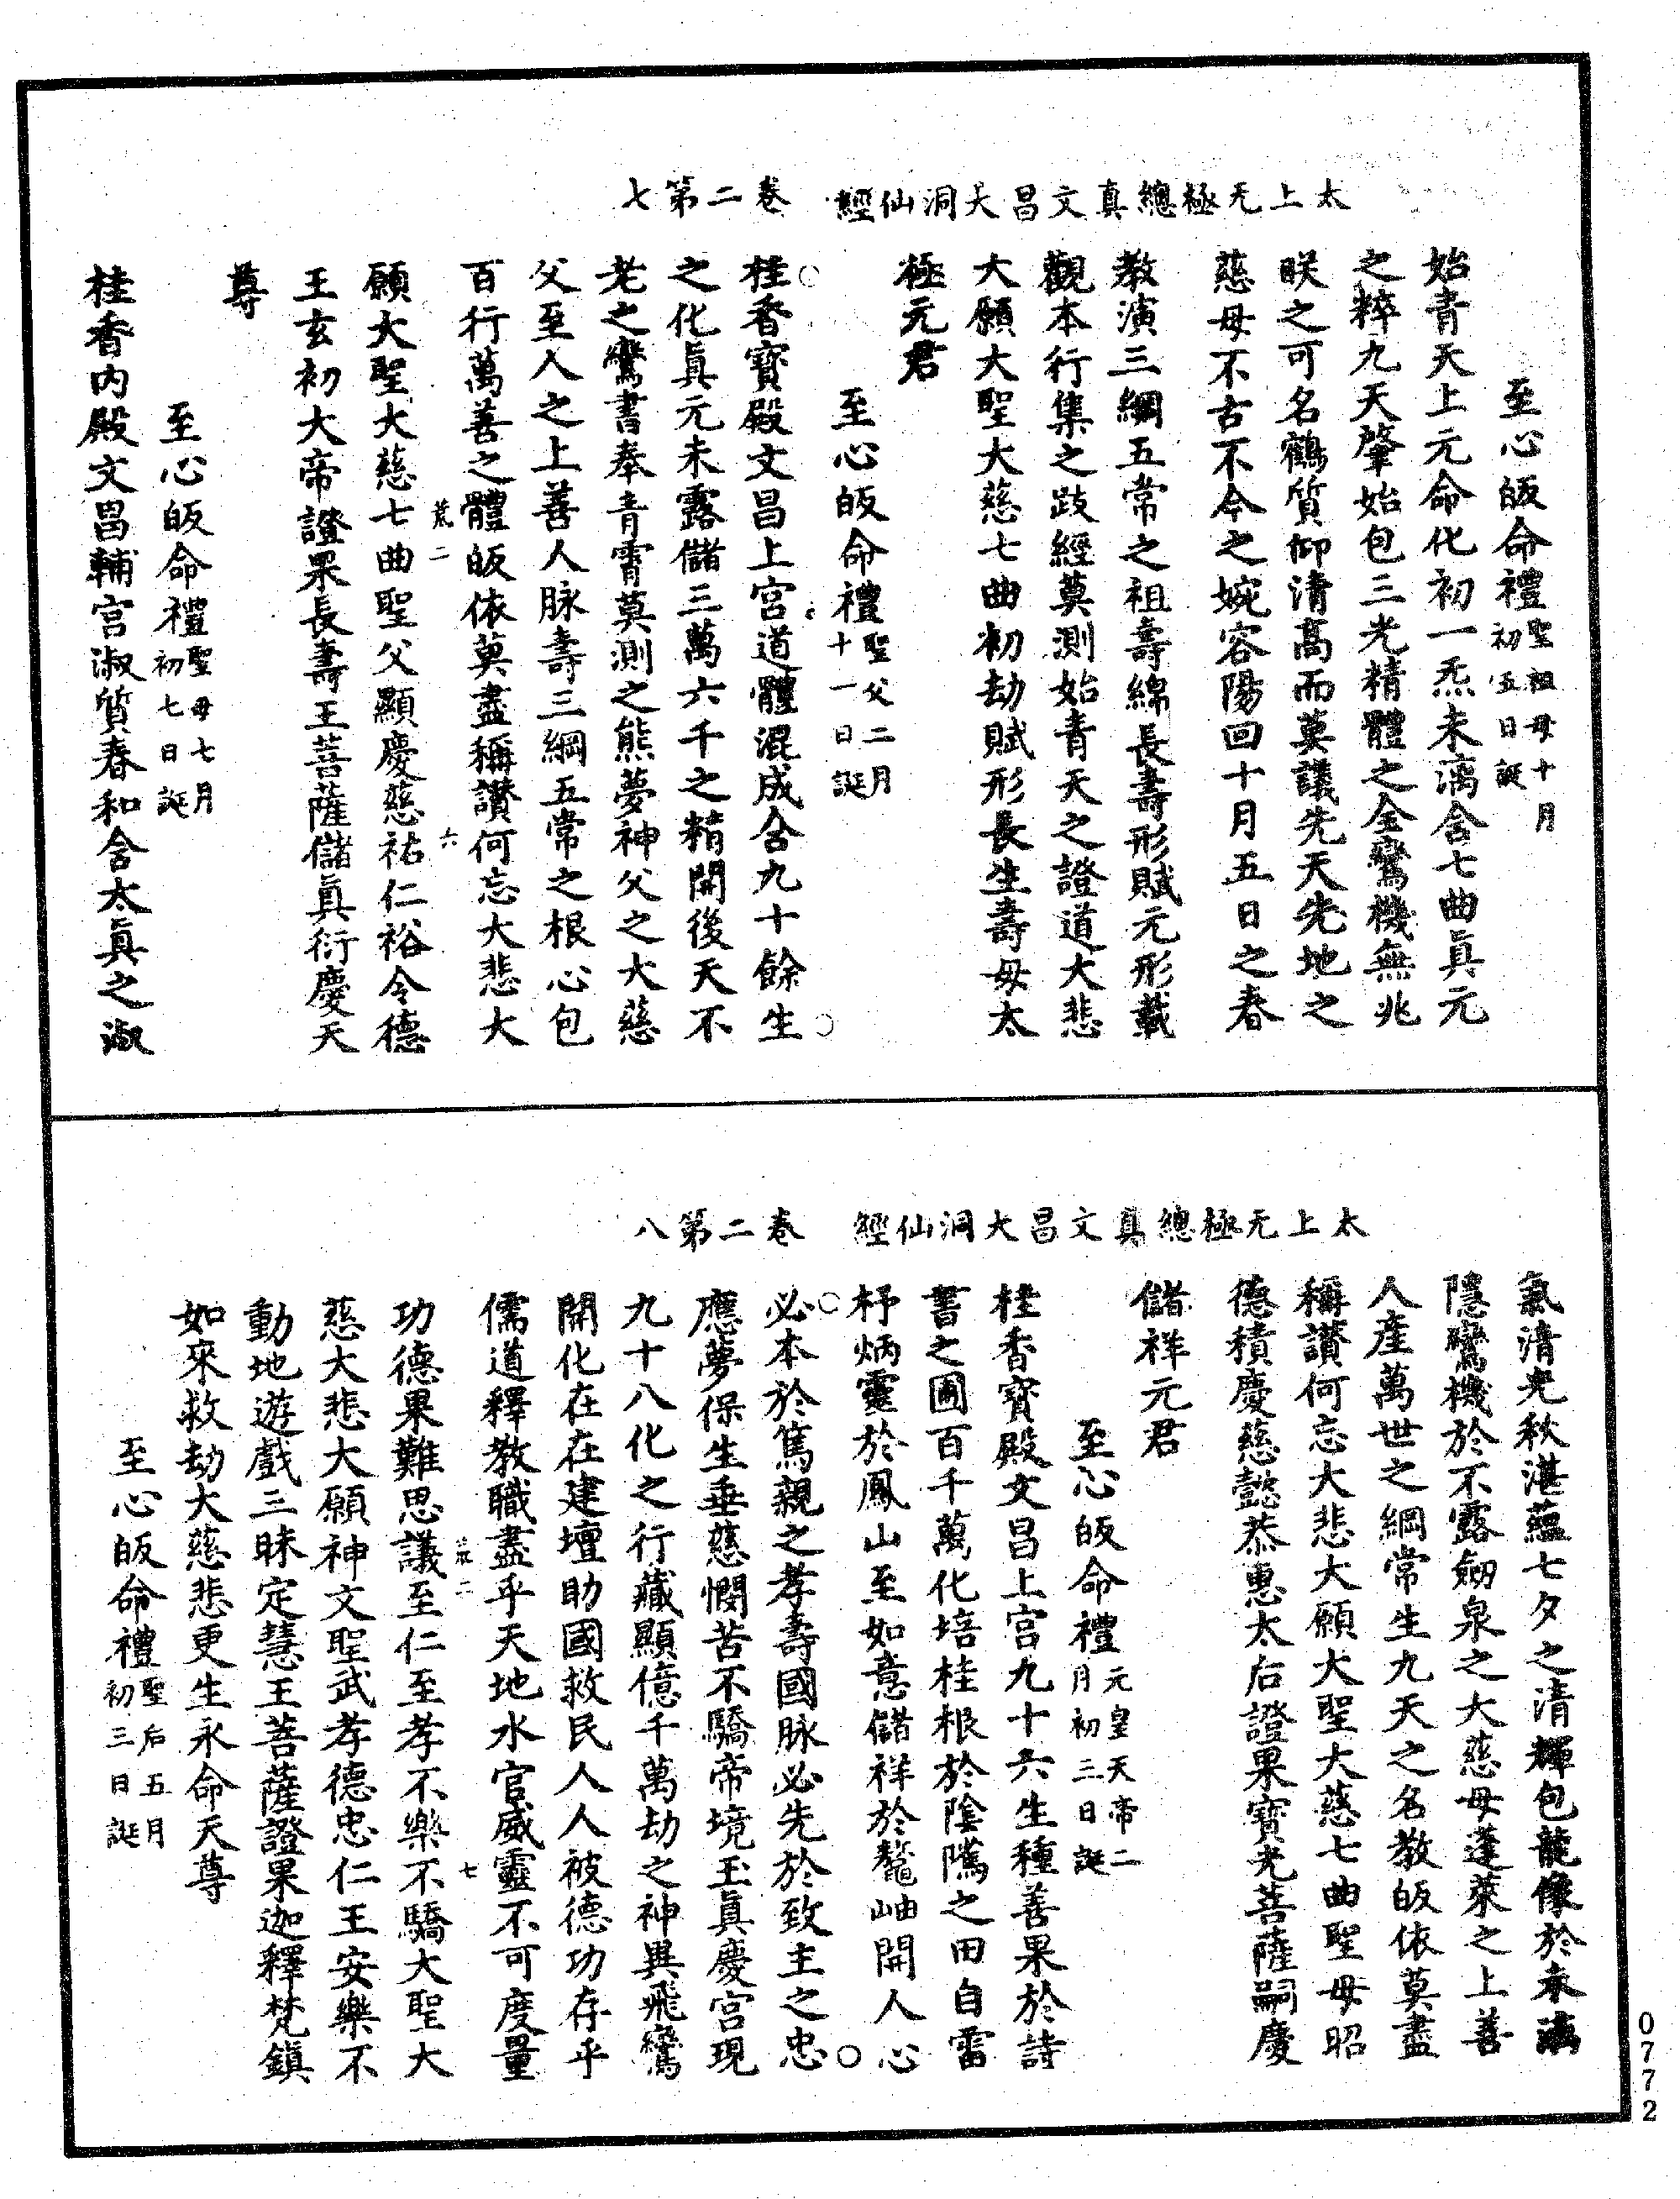 太上无極總真文昌大洞仙經　卷二第七
至心皈命禮聖祖母十月初五日誕
始青天上元命化初一炁未漓含七曲眞元
之粹九天肇始包三光精體之全鸞機無兆
朕之可名鶴質仰清高而莫議先天先地之
慈母不古不今之婉容陽回十月五日之春
教演三綱五常之祖壽綿長壽形賦元形載
觀本行集之跂經莫測始青天之證道大悲
大願大聖大慈七曲初劫賦形長生壽母太
極元君
至心皈命禮聖父二月十一日誕
桂香寶殿文昌上宫道體混成含九十餘生
之化眞元未露儲三萬六千之精開後天不
老之鸞書奉青霄莫測之熊夢神父之大慈
父至人之上善人脉壽三綱五常之根心包
百行萬善之體皈依莫盡稱讃何忘大悲大
荒二　六
願大聖大慈七曲聖父顯慶慈祐仁裕令德
王玄初大帝證果長壽王菩薩儲眞衍慶天
尊
至心皈命禮聖母七月初七日誕
桂香内殿文昌輔宫淑質春和含太眞之淑
太上无極總真文昌大洞仙經　卷二第八
氣清光秋湛蘊七夕之清輝包龍像於未漓
隱鸞機於不露劒泉之大慈母蓬萊之上善
人産萬世之綱常生九天之名教皈依莫盡
稱讃何忘大悲大願大聖大慈七曲聖母昭
德積慶慈懿恭惠太后證果寶光菩薩嗣慶
儲祥元君
至心皈命禮元皇天帝二月初三日誕
桂香寶殿文昌上宫九十六生種善果於詩
書之圃百千萬化培桂根於陰隲之田自雷
杼炳靈於鳳山至如意儲祥於鰲岫開人心
必本於篤親之孝壽國脉必先於致主之忠
應夢保生垂慈憫苦不驕帝境玉眞慶宫現
九十八化之行藏顯億千萬劫之神異飛鸞
開化在在建壇助國救民人人被德功存乎
儒道釋教職盡乎天地水官威靈不可度量
二　七
功德果難思議至仁至孝不樂不驕大聖大
慈大悲大願神文聖武孝德忠仁王安樂不
動地遊戲三昧定慧王菩薩證果迦釋梵鎭
如來救劫大慈悲更生永命天尊
至心皈命禮聖后五月初三日誕
0772